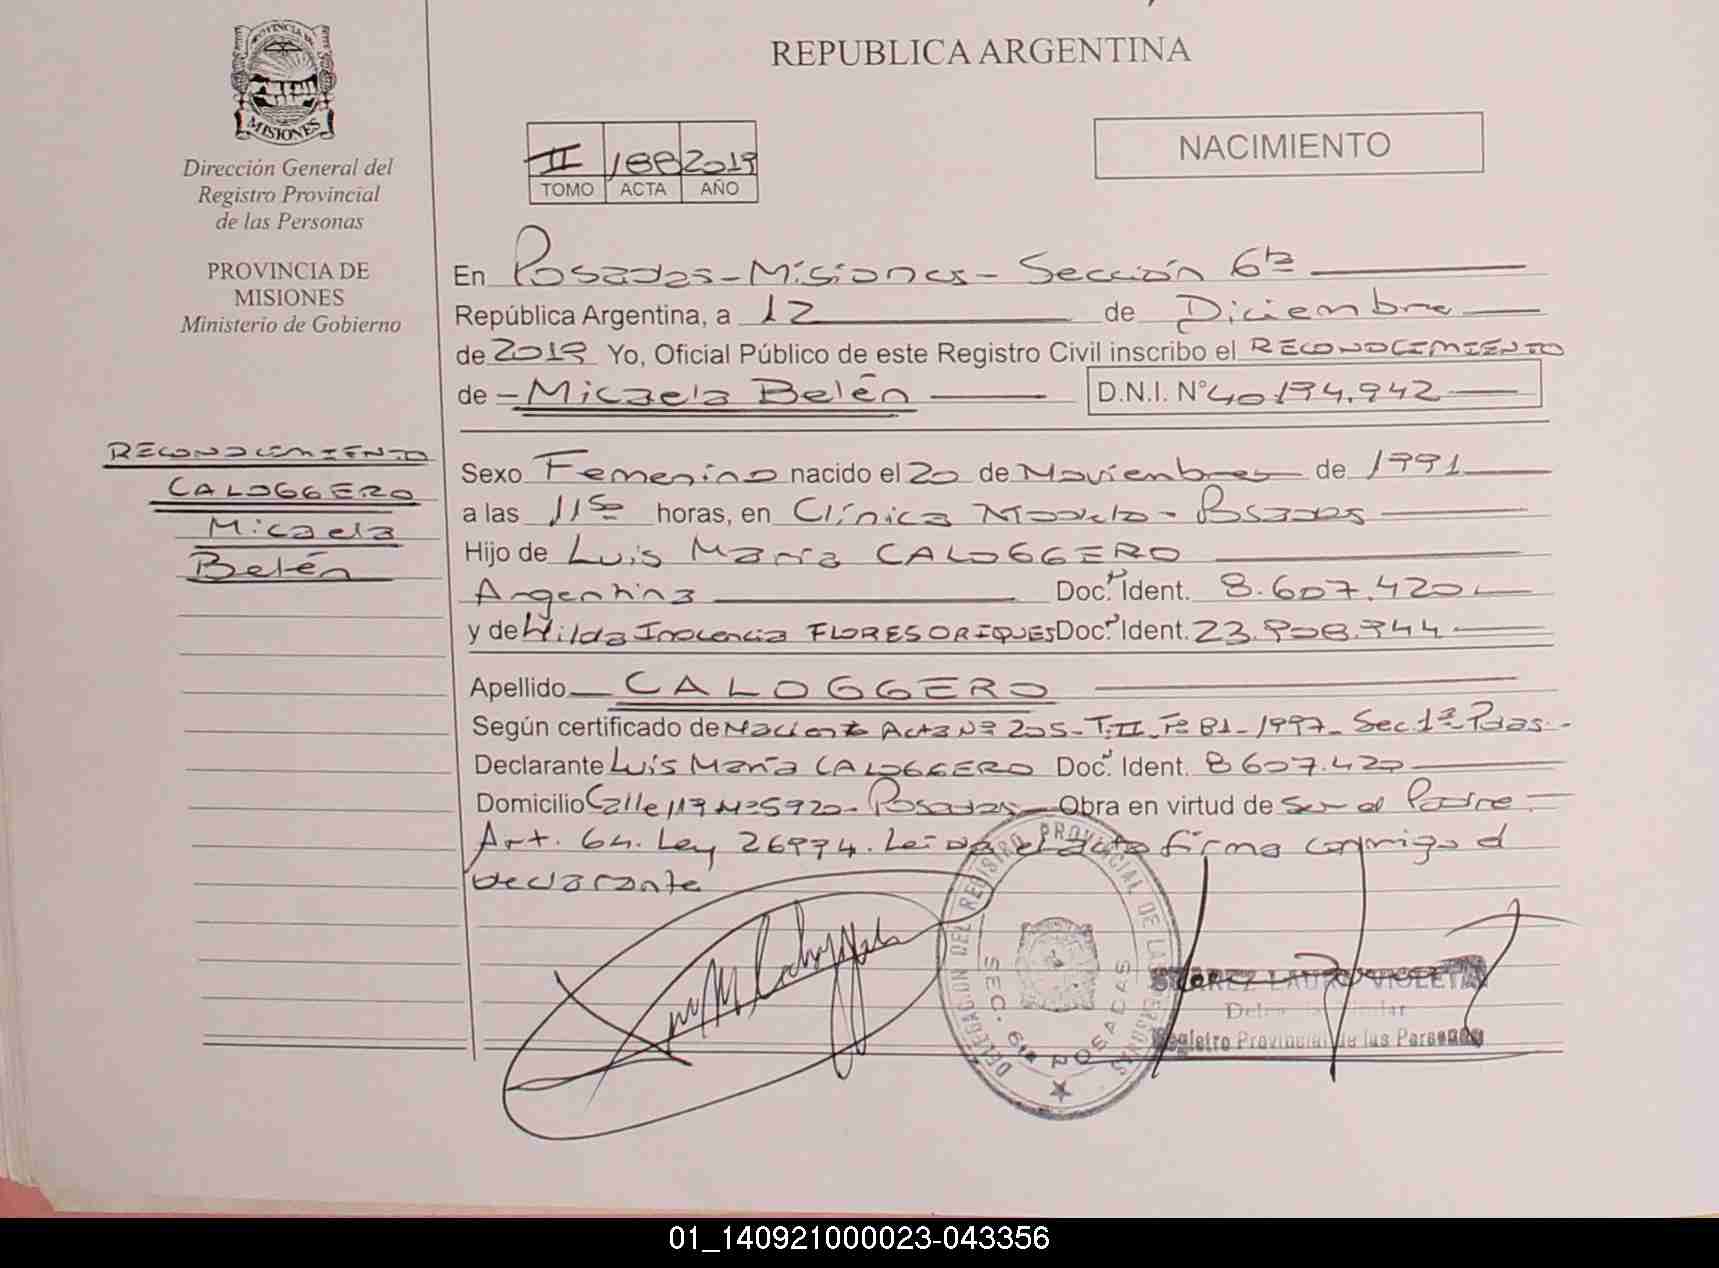 REPUBLICA ARGENTINA
PROVINCIA DE
MISIONES
Dirección General del
Registro Provincial
de las Personas
PROVINCIA DE
MISIONES
Ministerio de Gobierno
II 188 2019
TOMO ACTA AÑO
NACIMIENTO
En Posadas-Misiones-Sección 6ta
República Argentina, a 12 de Diciembre
de 2019 Yo, Oficial Público de este Registro Civil inscribo el RECONOCIMIENTO
de - Micaela Belén D.N.I. N° 40.194.942
RECONOCIMIENTO
CALOGGERO
Micaela
Belén
Sexo Femenino nacido el 20 de Noviembre de 1991
a las 11:50 horas, en Clínica Modelo - Posadas
Hijo de Luis María CALOGGERO
Argentina Doc. Ident. 8.607.420
y de Hilda Inocencia FLORES ORIQUES Doc. Ident. 23.908.944
Apellido CALOGGERO
Según certificado de Nacimto Acta Nº 205 - T:II - Fº 81 - 1997 - Sec. 1ª Pdas. -
Declarante Luis María CALOGGERO Doc. Ident. 8 607.420
Domicilio Calle 119 Nº 5920 - Posadas Obra en virtud de ser el Padre.
Art. 64. Ley 26994. Leída el acta firma conmigo el
declarante
DELEGACION DEL REGISTRO PROVINCIAL DE LAS PERSONAS
SEC. 6ta POSADAS
LAURA VIOLETA
Registro Provincial de las Personas
01_140921000023-043356